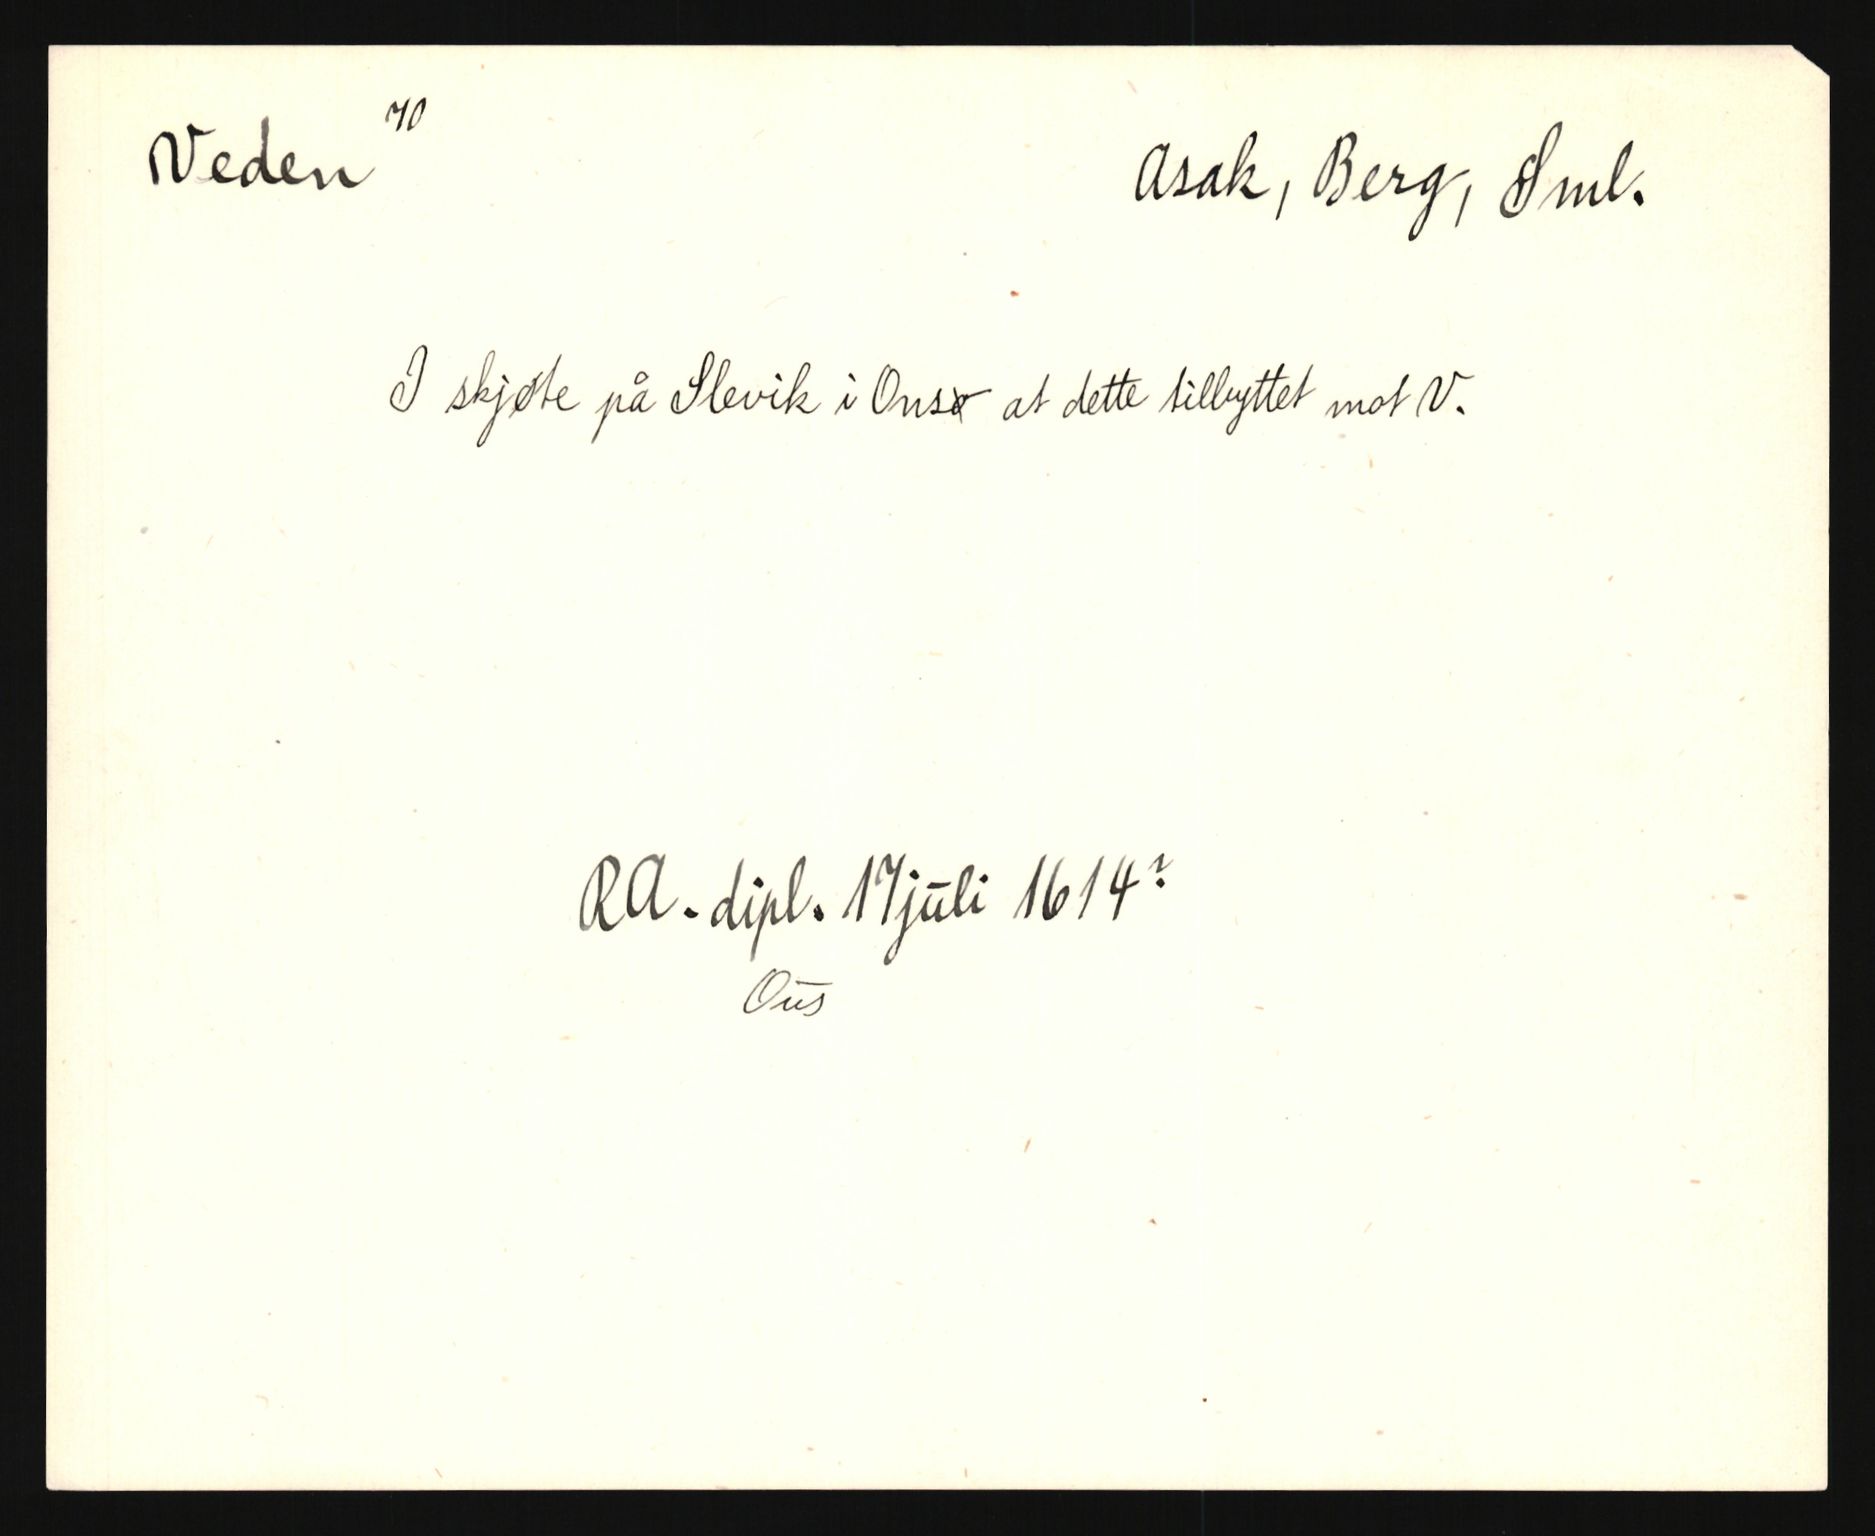 Veden 70
Asak, Berg, Sml.
I skjøte på Slevik i Onsø at dette tilbyttet mot V.
RA. dipl. 17 juli 1614?
Ous